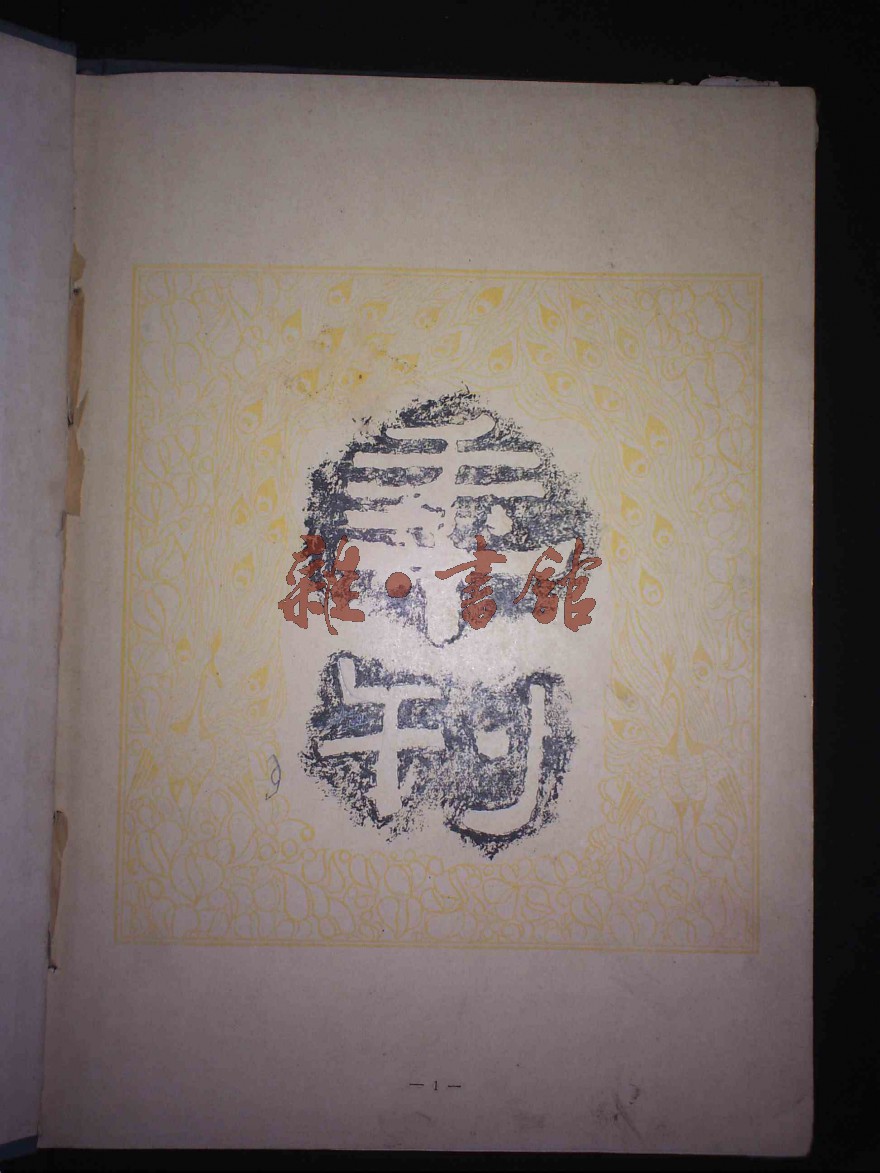 季刊
雜·書館
— 1 —